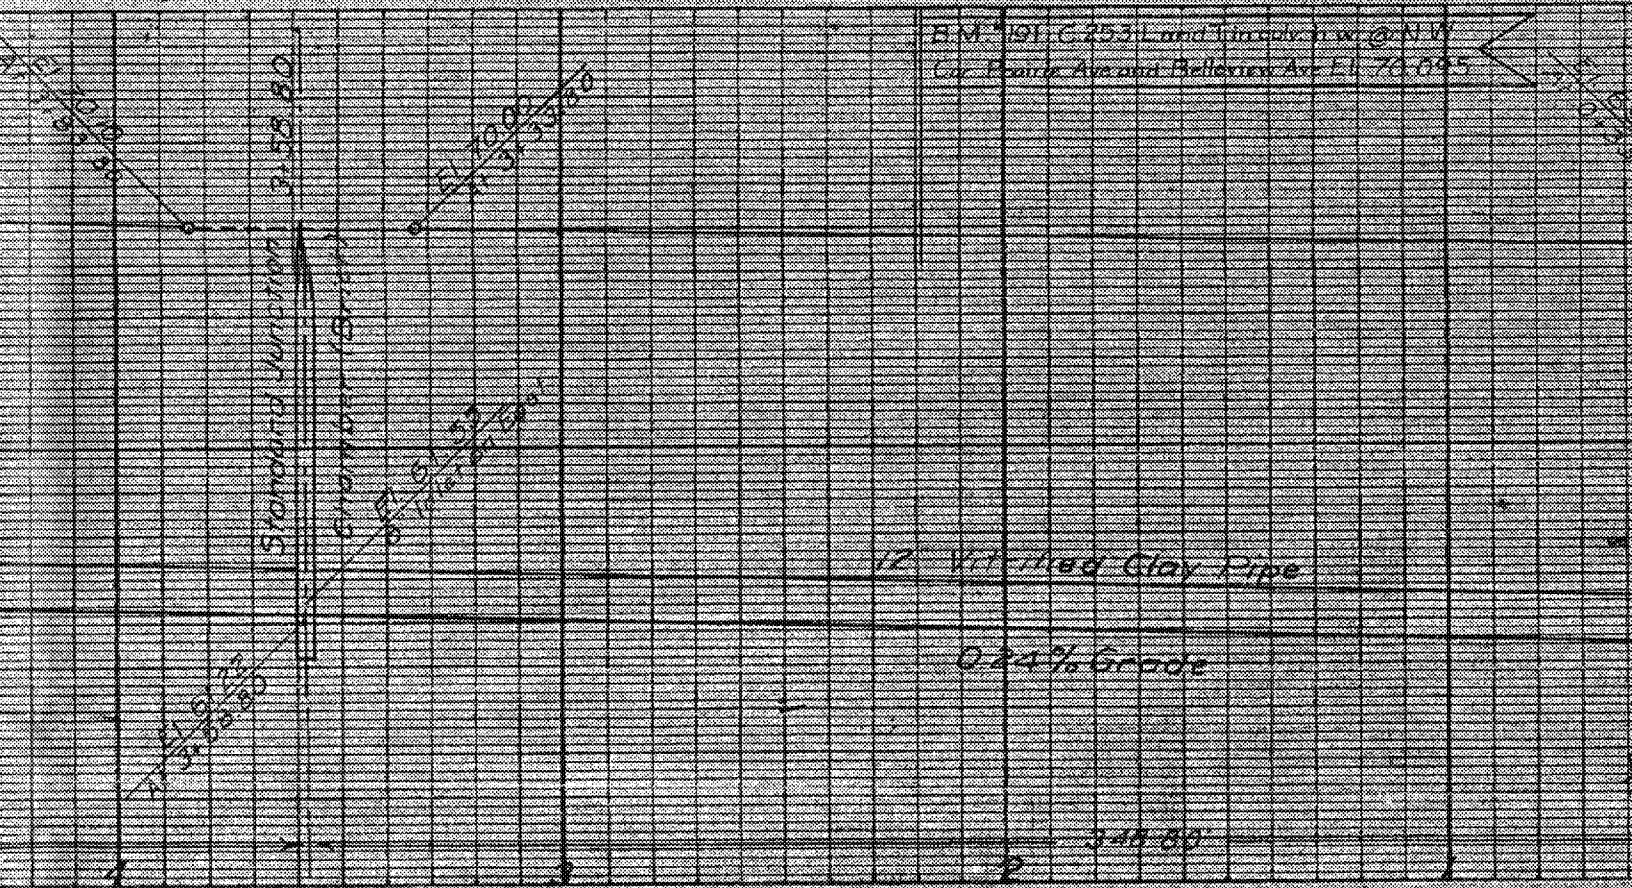 B.M. 191 C 253 L and T in culv. h.w. @ N.W.
Cor. Prairie Ave and Belleview Ave El. 70.095
El. 70.10
At 3+83.80
3+58.80
El. 70.00
At 3+33.80
Standard Junction
Chamber (Brick)
El. 61.53
Inlet on East
12" Vitrified Clay Pipe
0.24% Grade
El. 61.22
At 3+58.80
348.80'
4 3 2 1